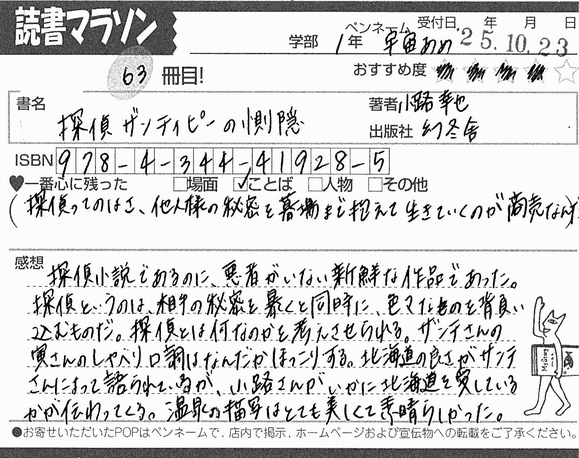 読書マラソン
学部 1年 ペンネーム 宇宙あめ 受付日 年 月 日
'25.10.23
63冊目!
おすすめ度 ★★★★☆
書名 探偵ザンティピーの惻隠
著者 小路幸也
出版社 幻冬舎
ISBN 978-4-344-41928-5
♥一番心に残った □場面 ☑ことば □人物 □その他
(探偵ってのはさ、他人様の秘密を墓場まで抱えて生きていくのが商売なんだ
感想
探偵小説であるのに、悪者がいない新鮮な作品であった。
探偵というのは、相手の秘密を暴くと同時に、色々なものを背負い
込むものだ。探偵とは何なのかを考えさせられる。ザンテさんの
寅さんのしゃべり口調はなんだかほっこりする。北海道の良さがザンテ
さんによって語られているが、小路さんがいかに北海道を愛している
かが伝わってくる。温泉の描写はとても美しくて素晴らしかった。
●お寄せいただいたPOPはペンネームで、店内で掲示、ホームページおよび宣伝物への転載をご了承ください。